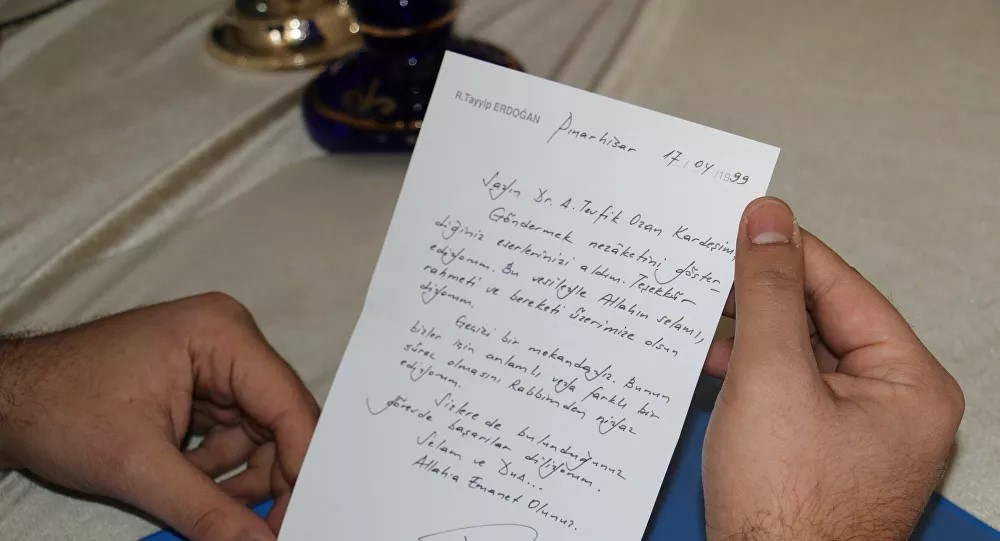 R.Tayyip ERDOĞAN
Pınarhisar 17/04/1999
Sayın Dr. A. Tevfik Ozan Kardeşim,
Göndermek nezâketini göster
diğiniz eserlerinizi aldım. Teşekkür
ediyorum. Bu vesileyle Allahın selamı,
rahmeti ve bereketi üzerimize olsun
diyorum.
Geçizi bir mekandayız. Bunun
bizler için anlamlı veya farklı bir
süreç olmasını Rabbimden niyaz
ediyorum.
Sizlere de bulunduğunuz
görevde başarılar diliyorum.
Selam ve Dua...
Allaha Emanet Olunuz.